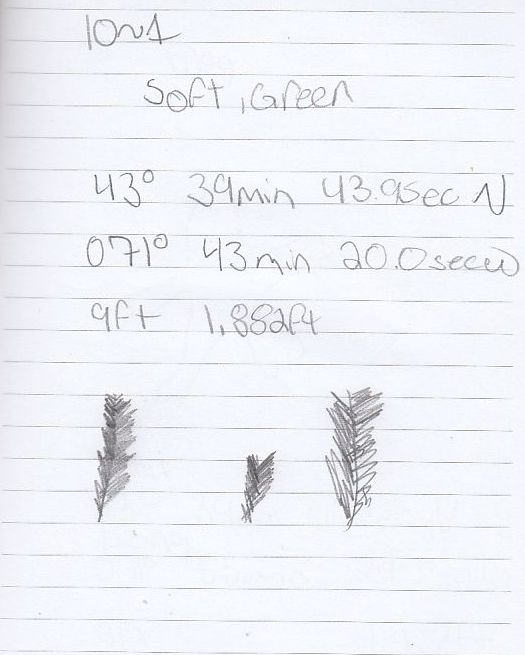 10~1
Soft, Green
43° 39min 43.9sec N
071° 43min 20.0sec W
9ft 1,882ft